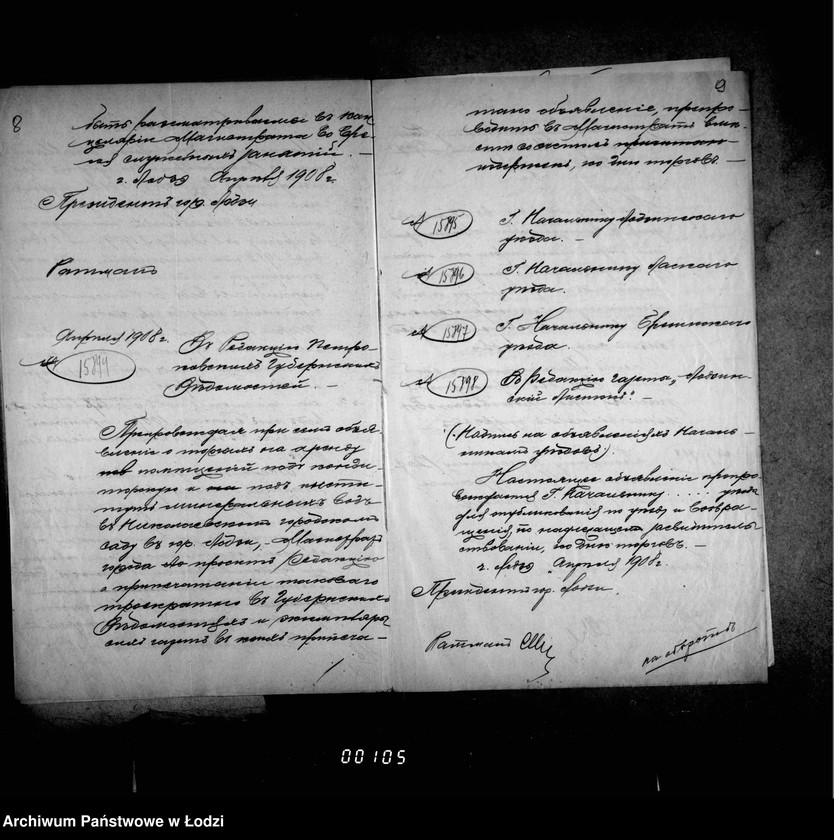 8
быть рассматриваемы въ кан-
целяріи Магистрата во вре-
мя служебныхъ занятій. —
г. Лодзь Апрѣля 1908 г.
Президентъ гор. Лодзи
Ратманъ
Апрѣля 1908 г.
№ 15894
Въ Редакцію Петро-
ковскихъ Губернскихъ
Вѣдомостей. —
Препровождая при семъ объяв-
леніе о торгахъ на аренду
помѣщеній подъ конди-
терскую и подъ инсти-
тутъ минеральныхъ водъ
въ Николаевскомъ городскомъ
саду въ гор. Лодзи, Магистратъ
города Лодзи проситъ Редакцію
о припечатаніи таковаго
троекратно въ Губернскихъ
Вѣдомостяхъ и экземпляры
сихъ газетъ въ коихъ припеча-
9
тано объявленіе, препро-
водить въ Магистратъ
по дню торговъ. —
№ 15895
Г. Начальнику Лодзинскаго
уѣзда. —
№ 15896
Г. Начальнику Ласкаго
уѣзда.
№ 15897
Г. Начальнику Брезинскаго
уѣзда.
№ 15898
Въ Редакцію газеты „Лодзин-
скій Листокъ". —
(Надпись на объявленіяхъ Началь-
никамъ уѣздовъ).
Настоящее объявленіе препро-
вождается Г. Начальнику .... уѣзда
для опубликованія по уѣзду и возвра-
щенія, по надлежащемъ засвидѣтель-
ствованіи, ко дню торговъ. —
г. Лодзь Апрѣля 1908 г.
Президентъ гор. Лодзи.
Ратманъ
на оборотѣ
00105
Archiwum Państwowe w Łodzi